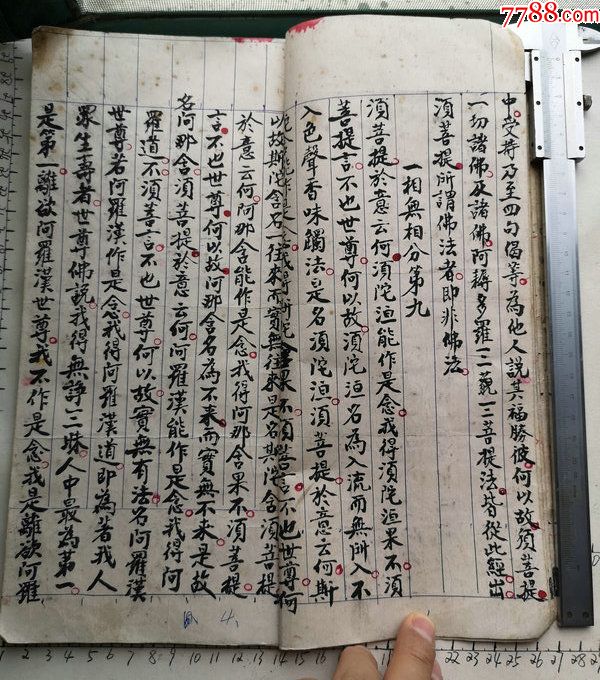 7788.com
中受持乃至四句偈等為他人說其福勝彼何以故須菩提
一切諸佛及諸佛阿耨多羅三藐三菩提法皆從此經出
須菩提所謂佛法者即非佛法
一相無相分第九
須菩提於意云何須陀洹能作是念我得須陀洹果不須
菩提言不也世尊何以故須陀洹名為入流而無所入不
入色聲香味觸法是名須陀洹須菩提於意云何斯
陀含能作是念我得斯陀含果不須菩提言不也世尊何
以故斯陀含名一往來而實無往來是名斯陀含須菩提
於意云何阿那含能作是念我得阿那含果不須菩提
言不也世尊何以故阿那含名為不來而實無不來是故
名阿那含須菩提於意云何阿羅漢能作是念我得阿
羅道不須菩言不也世尊何以故實無有法名阿羅漢
世尊若阿羅漢作是念我得阿羅漢道即為著我人
眾生壽者世尊佛說我得無諍三昧人中最為第一
是第一離欲阿羅漢世尊我不作是念我是離欲阿羅